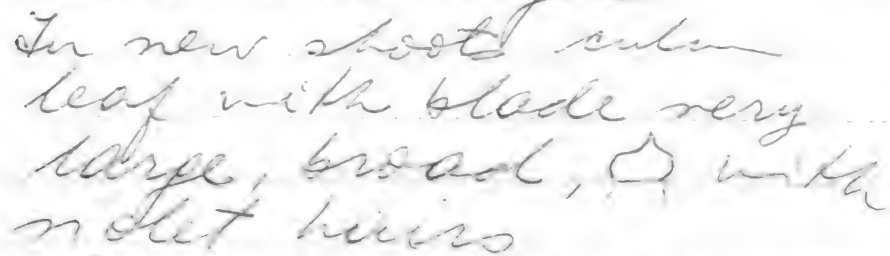 In new shoots culm
leaf with blade very
large, broad, with
violet hairs